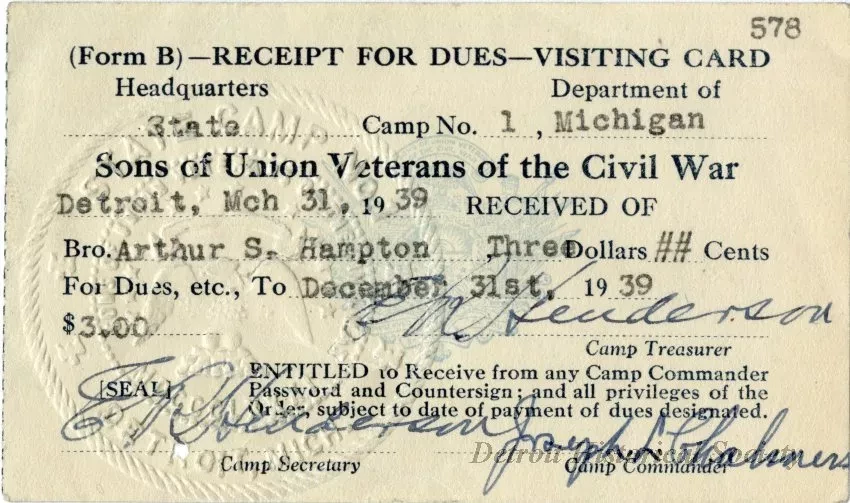 578
(Form B)—RECEIPT FOR DUES—VISITING CARD
Headquarters Department of
State Camp No. 1, Michigan
Sons of Union Veterans of the Civil War
Detroit, Mch 31, 1939 RECEIVED OF
Bro. Arthur S. Hampton, Three Dollars ## Cents
For Dues, etc., To December 31st, 1939
$3.00 E R Henderson
Camp Treasurer
[SEAL] ENTITLED to Receive from any Camp Commander
Password and Countersign; and all privileges of the
Order, subject to date of payment of dues designated.
E R Henderson Joseph Chalmers
Detroit Historical Society
Camp Secretary Camp Commander